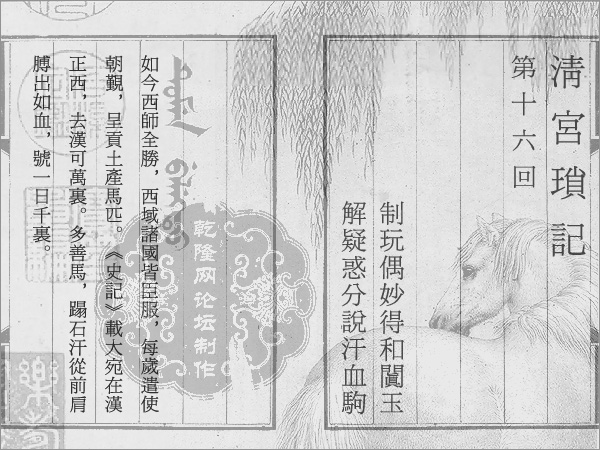 清宮瑣記
第十六回
制玩偶妙得和闐玉
解疑惑分說汗血駒
如今西師全勝，西域諸國皆臣服，每歲遣使
朝覲，呈貢土產馬匹。《史記》載大宛在漢
正西，去漢可萬裏。多善馬，蹋石汗從前肩
膊出如血，號一日千裏。
乾隆网论坛制作